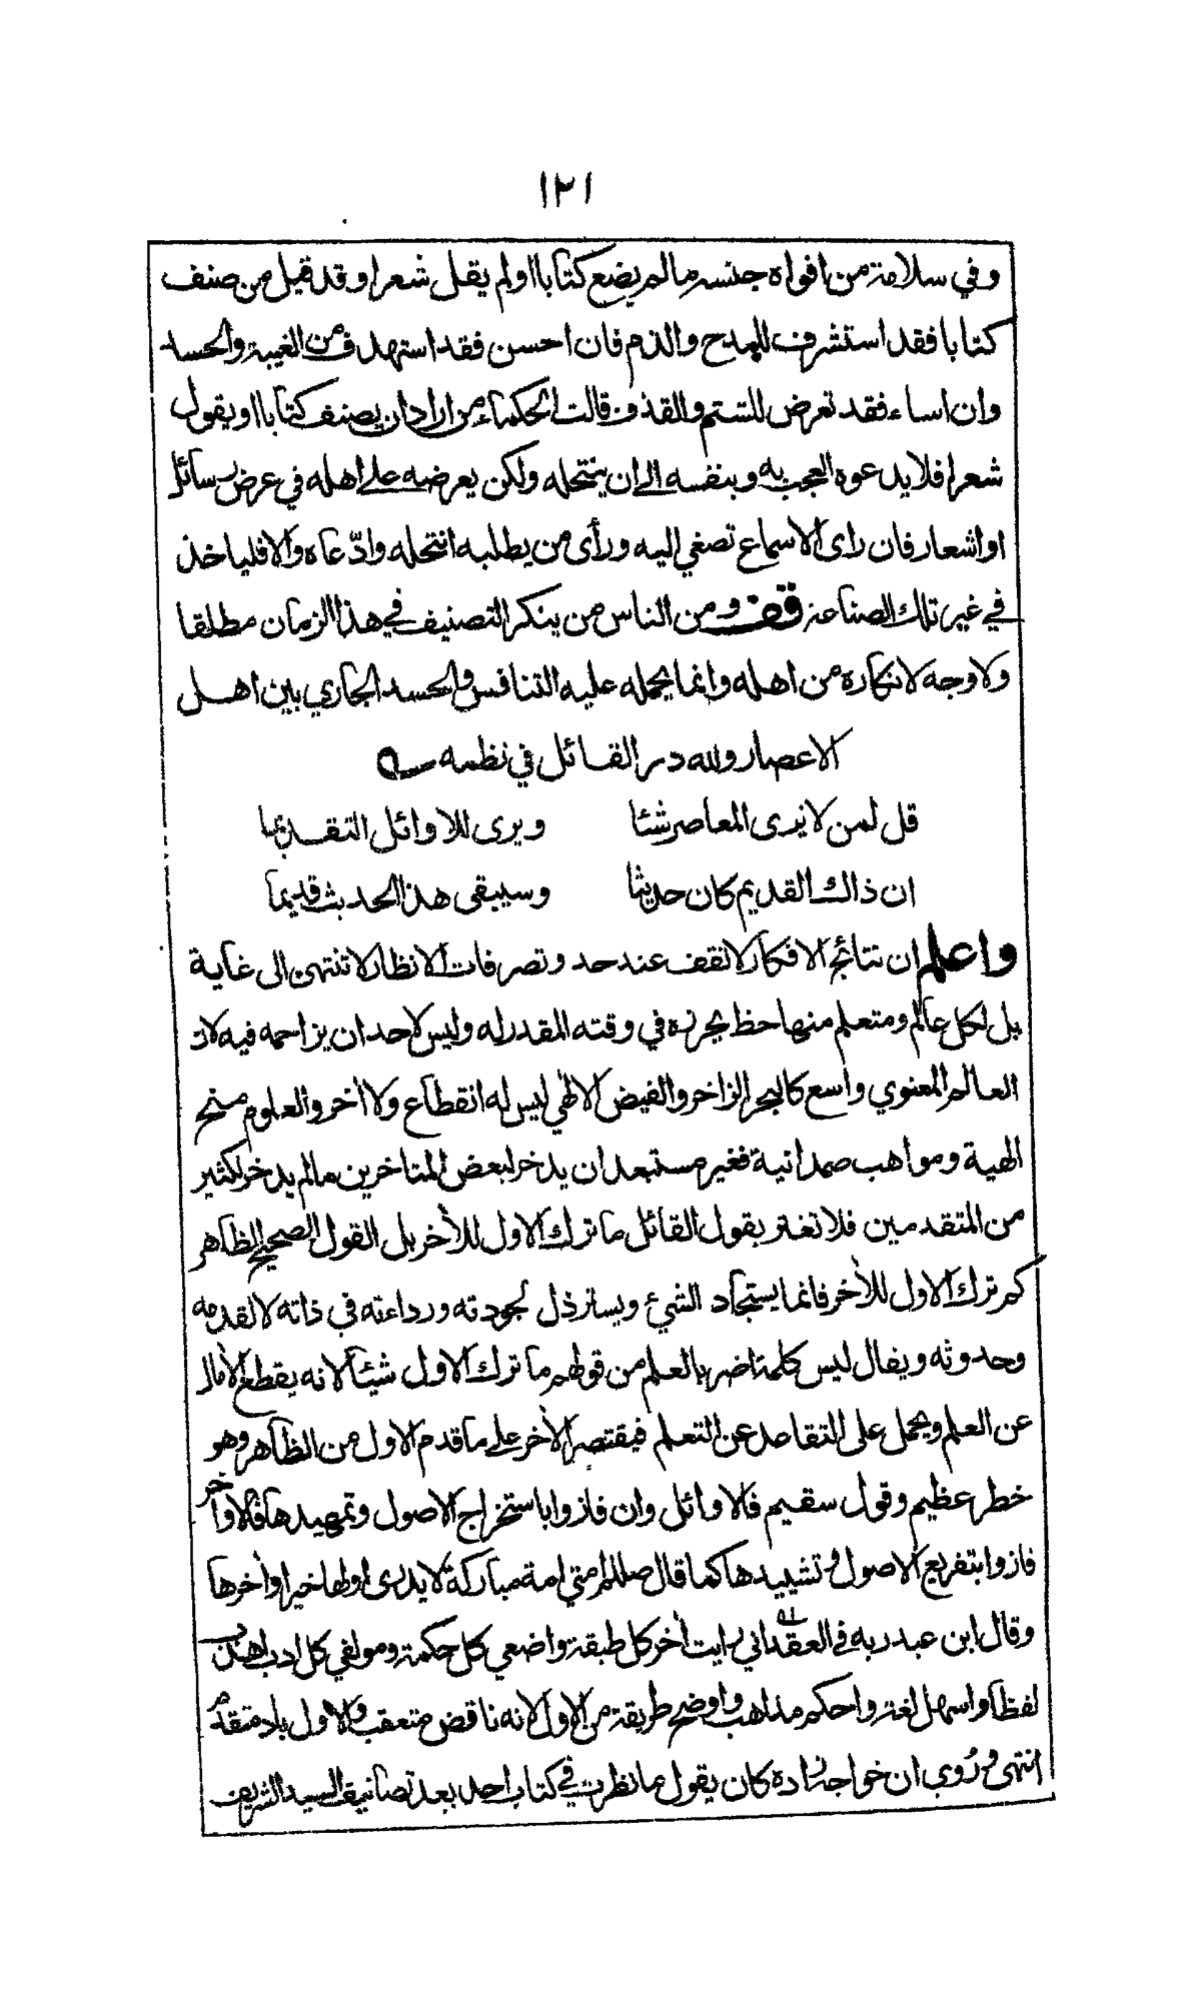 ١٢١
وفي سلامة من افواه جنسه ما لم يضع كتابا او لم يقل شعرا وقد قيل من صنف
كتابا فقد استشرف للمدح والذم فان احسن فقد استهدف من الغيبة والحسد
وان اساء فقد تعرض للشتم والقذف قالت الحكماء من اراد ان يصنف كتابا او يقول
شعرا فلا يدعوه العجب به وبنفسه الى ان ينتحله ولكن يعرضه على اهله في عرض رسائل
او اشعار فان راى الاسماع تصغي اليه ورأى من يطلبه انتحله وادّعاه والا فلياخذ
في غير تلك الصناعة قف ومن الناس من ينكر التصنيف في هذا الزمان مطلقا
ولا وجه لانكاره من اهله وانما يحمله عليه التنافس والحسد الجاري بين اهل
الاعصار ولله در القائل في نظمه
قل لمن لا يرى المعاصر شئا ويرى للاوائل التقديما
ان ذاك القديم كان حديثا وسيبقى هذا الحديث قديما
واعلم ان نتائج الافكار لا تقف عند حد وتصرفات الانظار لا تنتهي الى غاية
بل لكل عالم ومتعلم منها حظ يحرزه في وقته المقدر له وليس لاحد ان يزاحمه فيه لان
العالم المعنوي واسع كالبحر الزاخر والفيض الالهي ليس له انقطاع ولا اخر والعلوم منح
الهية ومواهب صمدانية فغير مستبعد ان يدخر لبعض المتاخرين ما لم يدخر لكثير
من المتقدمين فلا تغتر بقول القائل ما ترك الاول للأخر بل القول الصحيح الظاهر
كم ترك الاول للأخر فانما يستجاد الشيء ويسترذل لجودته ورداءته في ذاته لا لقدمه
وحدوثه ويقال ليس كلمة اضر بالعلم من قولهم ما ترك الاول شيئا لانه يقطع الآمال
عن العلم ويحمل على التقاعد عن التعلم فيقتصر الأخر على ما قدم الاول من الظاهر وهو
خطر عظيم وقول سقيم فالاوائل وان فازوا باستخراج الاصول وتمهيدها فالاواخر
فازوا بتفريع الاصول وتشييدها كما قال صللم امتي امة مباركة لا يدرى اولها خير او أخرها
وقال ابن عبد ربه في العقد اني رايت أخر كل طبقة واضعي كل حكمة ومولفي كل ادب اهذب
لفظا واسهل لغة واحكم مذاهب واوضح طريقة من الاول لانه ناقض متعقب والاول باد متقدم
انتهى ورُوي ان خواجه زاده كان يقول ما نظرت في كتاب احد بعد تصانيف السيد الشريف